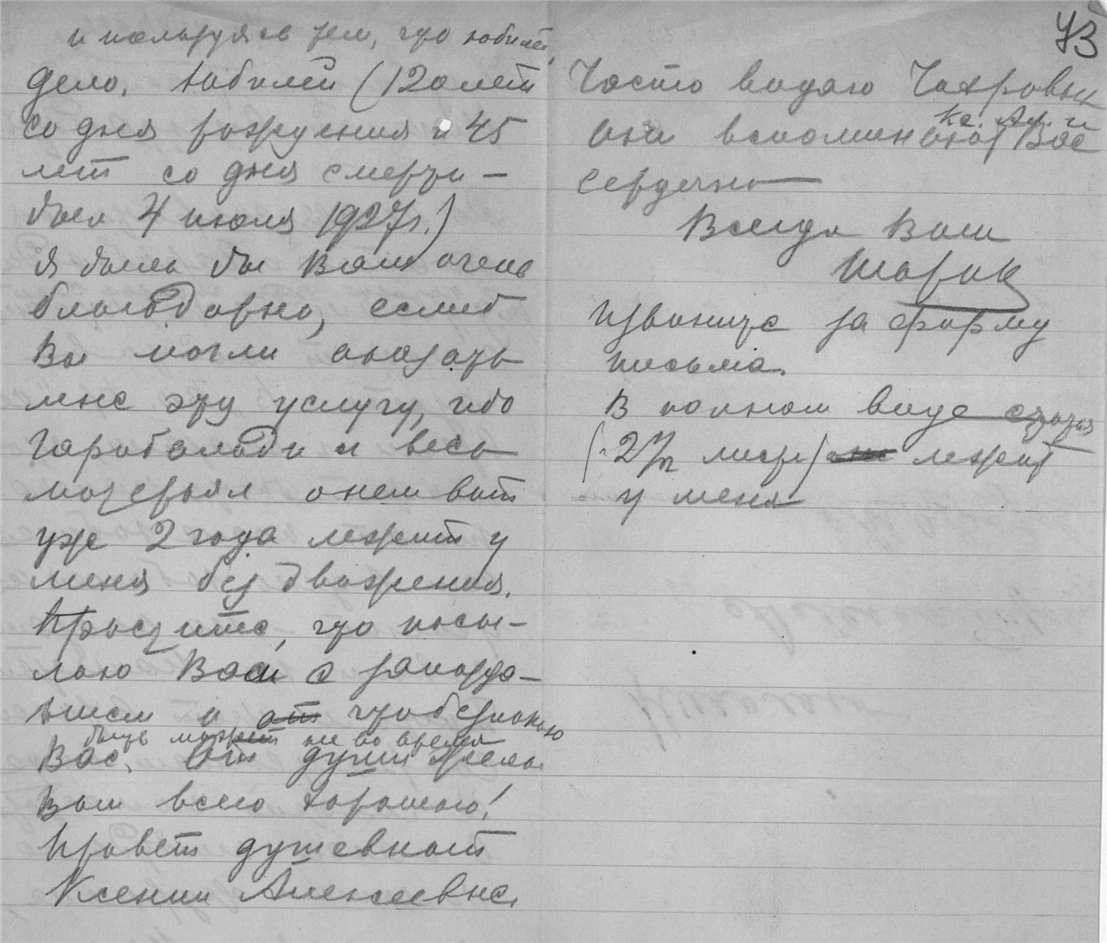 и пользуясь тем, что юбилей,
дело. Юбилей (120 лет
со дня рождения и 45
лет со дня смерти –
был 4 июля 1927 г.)
Я была бы Вам очень
благодарна, еслиб
Вы могли оказать
мне эту услугу, ибо
Гарибальди и весь
матерьял о нем вот
уже 2 года лежит у
меня без движения.
Простите, что посы-
лаю Вам с запозда-
нием и что беспокою
быть может не во время
Вас. От души желаю
Вам всего хорошего!
Привет душевный
Ксении Алексеевне.
73
Часто видаю
Ал. и
они вспоминают Вас
сердечно
Всегда Ваш
Извините за форму
письма.
В полном виде статья
(2 1/2 листа) лежит
у меня